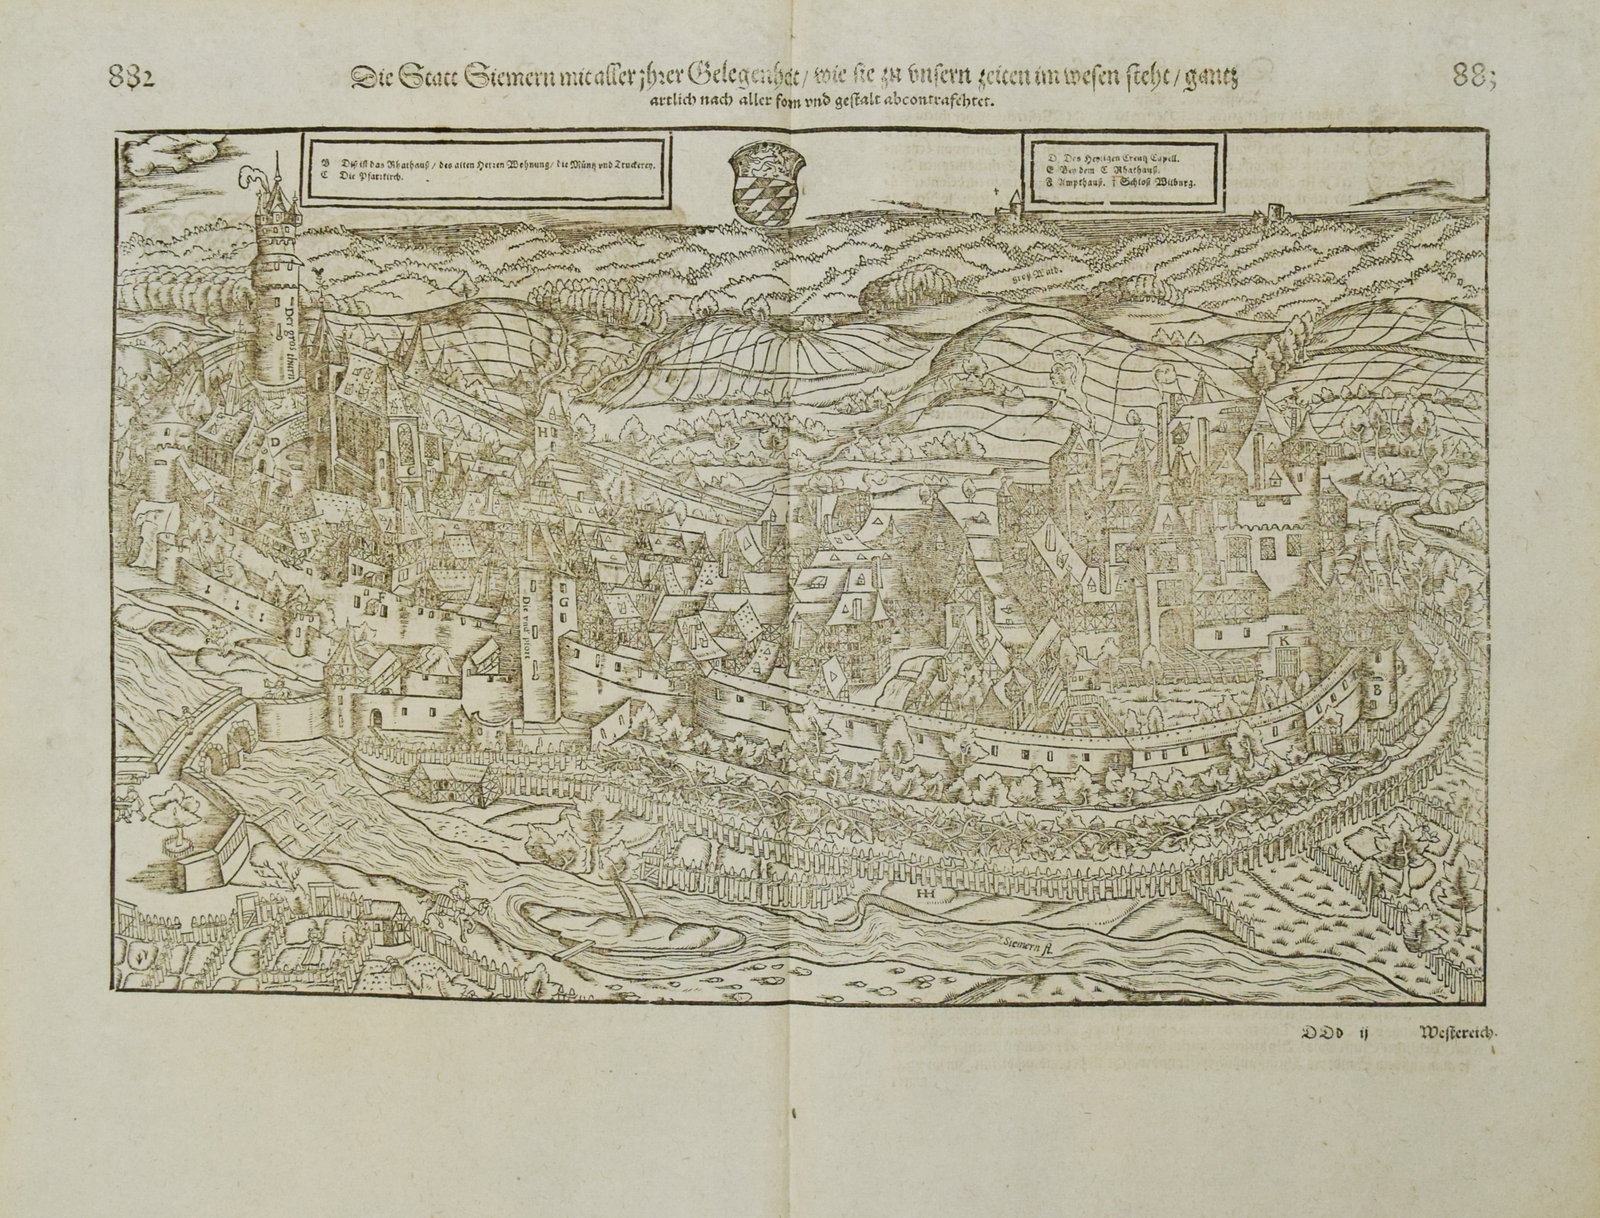 882
Die Statt Siemern mit aller jhrer Gelegenheit / wie sie zu vnsern zeiten im wesen steht / gantz
883
artlich nach aller form vnd gestalt abcontrafehtet.
B Diß ist das Rhathauß / des alten Herren Wohnung / die Müntz vnd Truckerey.
C Die Pfarrkirch.
D. Des Heyligen Creutz Capell.
E Bey dem C Rhathauß.
F Ampthauß. † Schloß Wilburg.
Groß Wald.
Der groß thurn
D
H
G
Die vnd pfort
K
B
HH
Siemern fl.
DDd ij
Westereich.